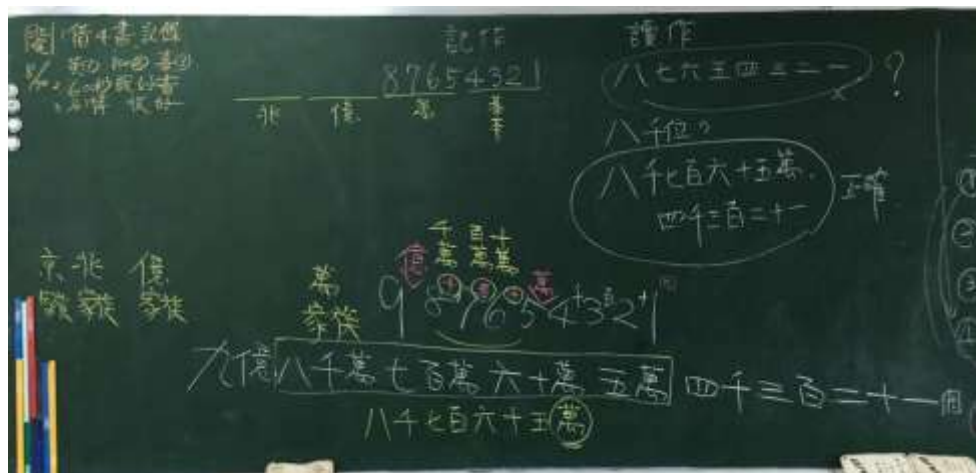 記作
87654321
兆 億 萬
讀作
八七六五四三二一 ?
八千位?
八千七百六十五萬
四千三百二十一
正確
京 兆 億
家族 家族 家族
萬
家族
千 百 十
萬 萬 萬
億 萬
987654321
九億八千萬七百萬六十萬五萬四千三百二十一個
八千七百六十五萬
①
②
③
④